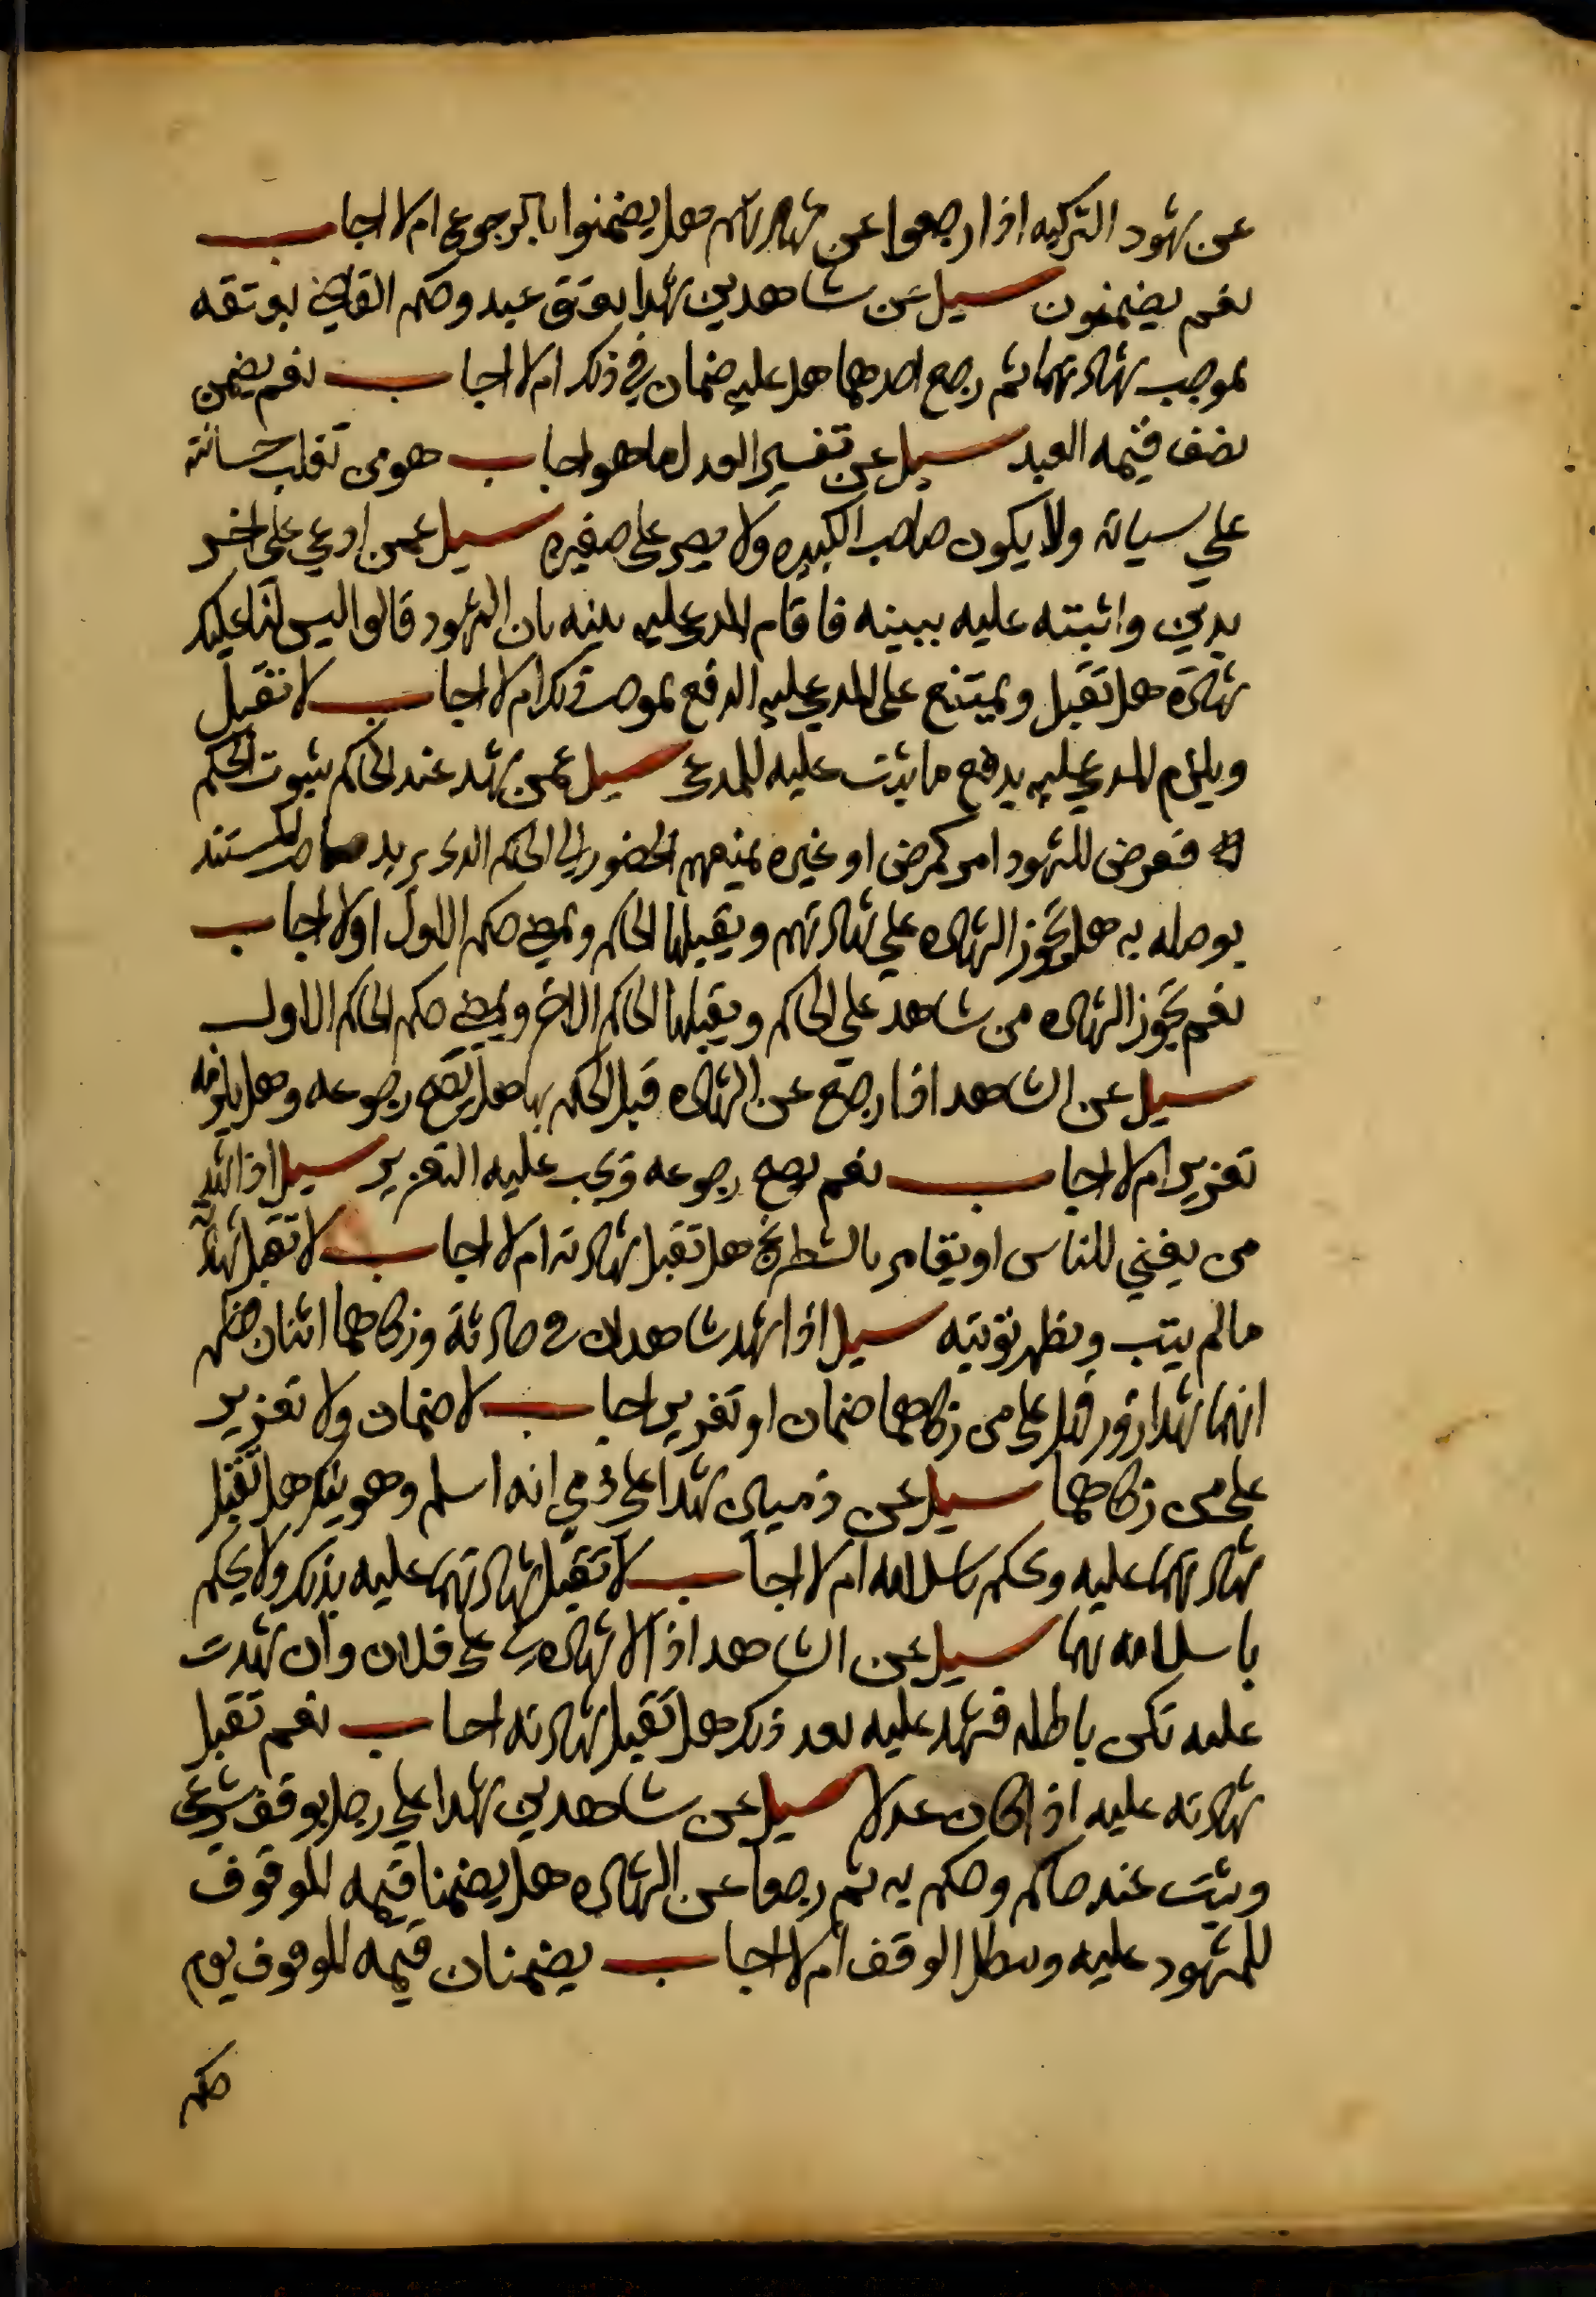 عن شهود التزكيه اذا رجعوا عن شهادتهم هل يضمنوا بالرجوع ام لا اجاب
نعم يضمنون سيل عن شاهدين شهدا بعتق عبد وحكم القاضي بعتقه
بموجب شهادتهما ثم رجع احدهما هل عليه ضمان في ذلك ام لا اجاب نعم يضمن
نصف قيمه العبد سيل عن تفسير العدل ما هو اجاب هو من تغلب حسناته
علي سياته ولا يكون صاحب الكبيره ولا يصر على صغيره سيل عمن ادعي على اخر
بدين واثبته عليه ببينه فاقام المدعي عليه بينه بان الشهود قالوا ليس لنا عليك
شهادة هل تقبل ويمتنع على المدعي عليه الدفع بموجب ذلك ام لا اجاب لا تقبل
ويلزم المدعي عليه بدفع ما يثبت عليه للمدعي سيل عمن شهد عند الحاكم بثبوت الحكم
فعرض للشهود امر كمرض او غيره يمنعهم الحضور الي الحاكم الذي يريد صاحب المستند
يوصله به هل تجوز الشهاده علي شهادتهم ويقبلها الحاكم ويمضي حكم الاول اولا اجاب
نعم تجوز الشهاده من شاهد على الحاكم ويقبلها الحاكم الاخر ويمضي حكم الحاكم الاول
سيل عن الشاهد اذا رجع عن الشهاده قبل الحكم بها هل يصح رجوعه وهل يلزمه
تعزير ام لا اجاب نعم يصح رجوعه ويجب عليه التعزير سيل اذا شهد
من يغني للناس او يقامر بالشطرنج هل تقبل شهادته ام لا اجاب لا تقبل شهادته
مالم يتب ويظهر توبته سيل اذا شهد شاهدان في حادثة وزكاهما اثنان فظهر
انهما شهدا زور هل على من زكاهما ضمان او تعزير اجاب لا ضمان ولا تعزير
على من زكاهما سيل عن ذميان شهدا على ذمي انه اسلم وهو ينكر هل تقبل
شهادتهما عليه ويحكم باسلامه ام لا اجاب لا تقبل شهادتهما عليه بذلك ولا يحكم
باسلامه بهما سيل عن الشاهد اذا قال لا شهادة لي على فلان وان شهدت
عليه تكن باطله فشهد عليه بعد ذلك هل تقبل شهادته اجاب نعم تقبل
شهادته عليه اذا كان عدلا سيل عن شاهدين شهدا علي رجل بوقف شرعي
ويثبت عند حاكم وحكم به ثم رجعا عن الشهاده هل يضمنا قيمه الموقوف
للمشهود عليه ويبطل الوقف ام لا اجاب يضمنان قيمه الموقوف يوم
حكم